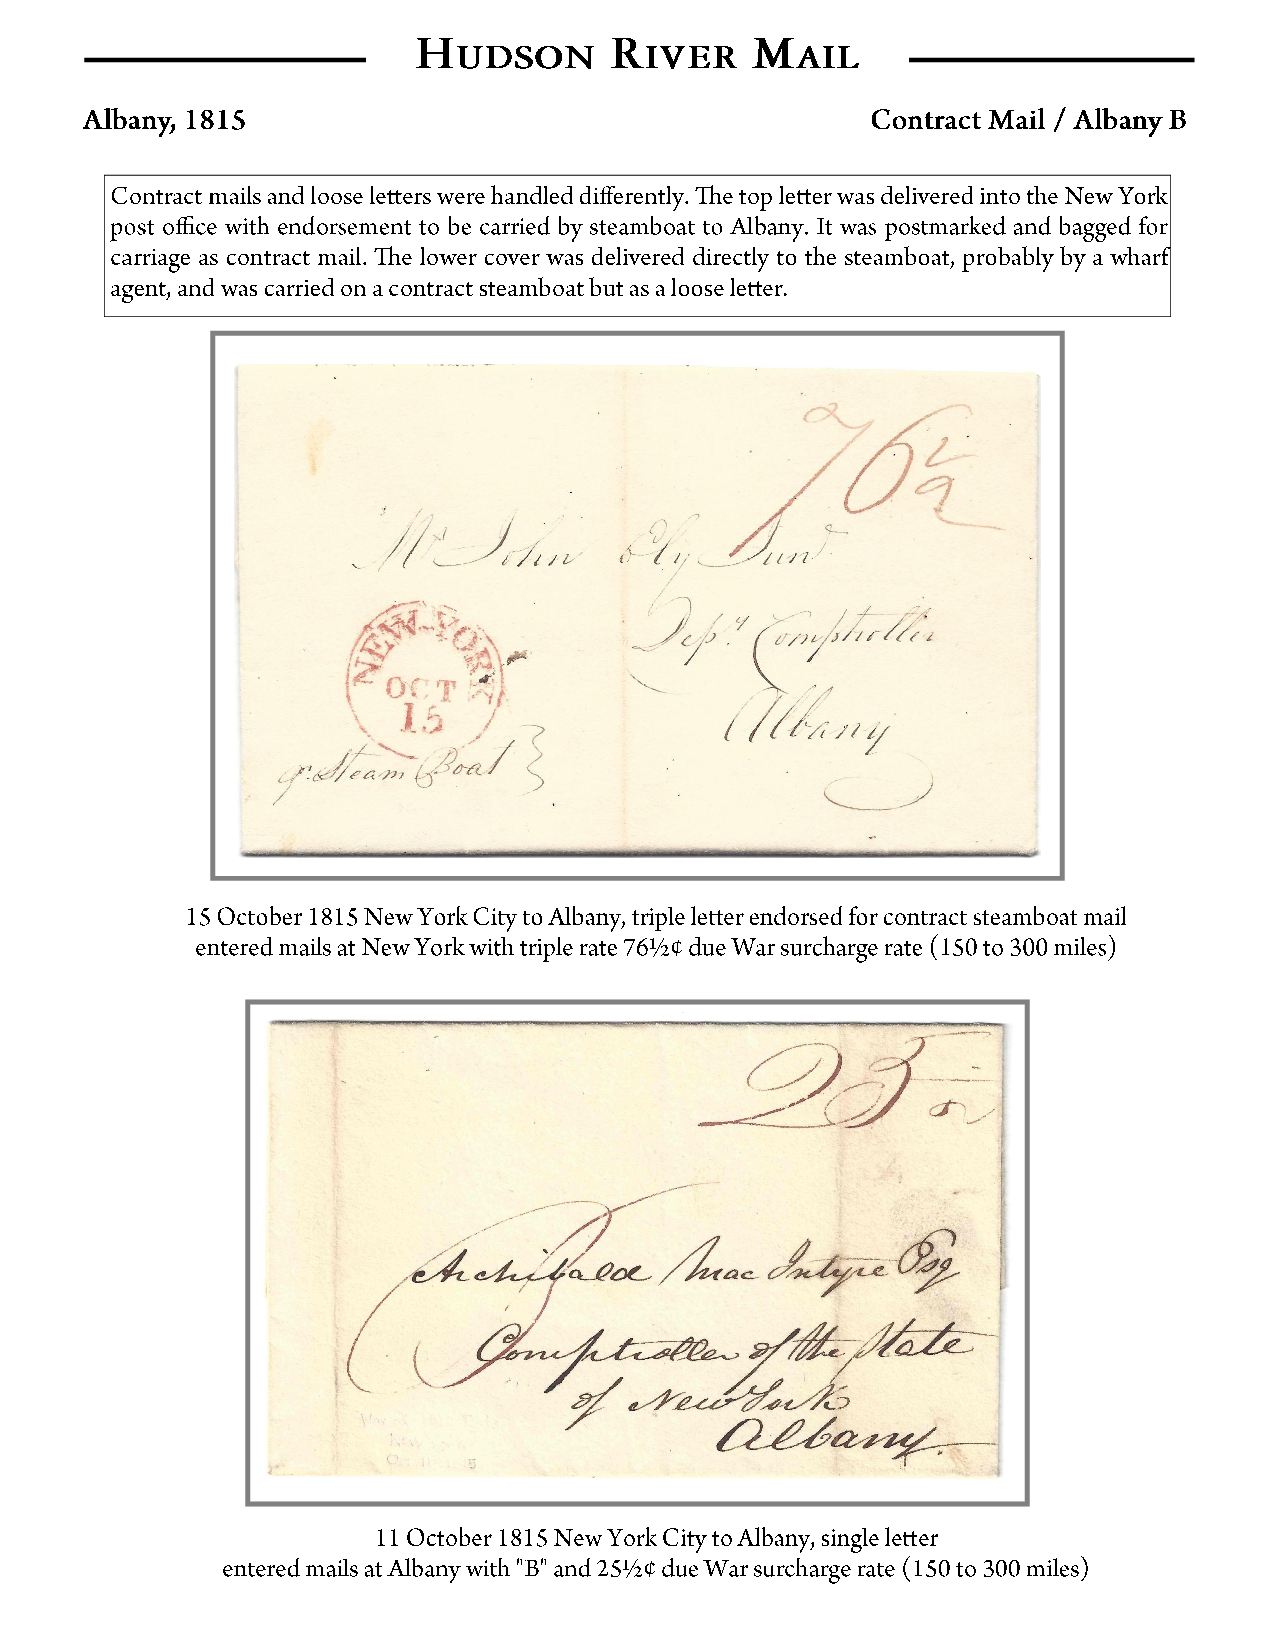 HUDSON RIVER MAIL
Albany, 1815
Contract Mail / Albany B
Contract mails and loose letters were handled differently. The top letter was delivered into the New York
post office with endorsement to be carried by steamboat to Albany. It was postmarked and bagged for
carriage as contract mail. The lower cover was delivered directly to the steamboat, probably by a wharf
agent, and was carried on a contract steamboat but as a loose letter.
76½
Mr John Ely Junr
Depy Comptroller
NEW-YORK
OCT
15
Albany
pr. Steam Boat
15 October 1815 New York City to Albany, triple letter endorsed for contract steamboat mail
entered mails at New York with triple rate 76½¢ due War surcharge rate (150 to 300 miles)
25½
B
Archibald MacIntyre Esq
Comptroller of the State
of New York
Albany.
11 October 1815 New York City to Albany, single letter
entered mails at Albany with "B" and 25½¢ due War surcharge rate (150 to 300 miles)